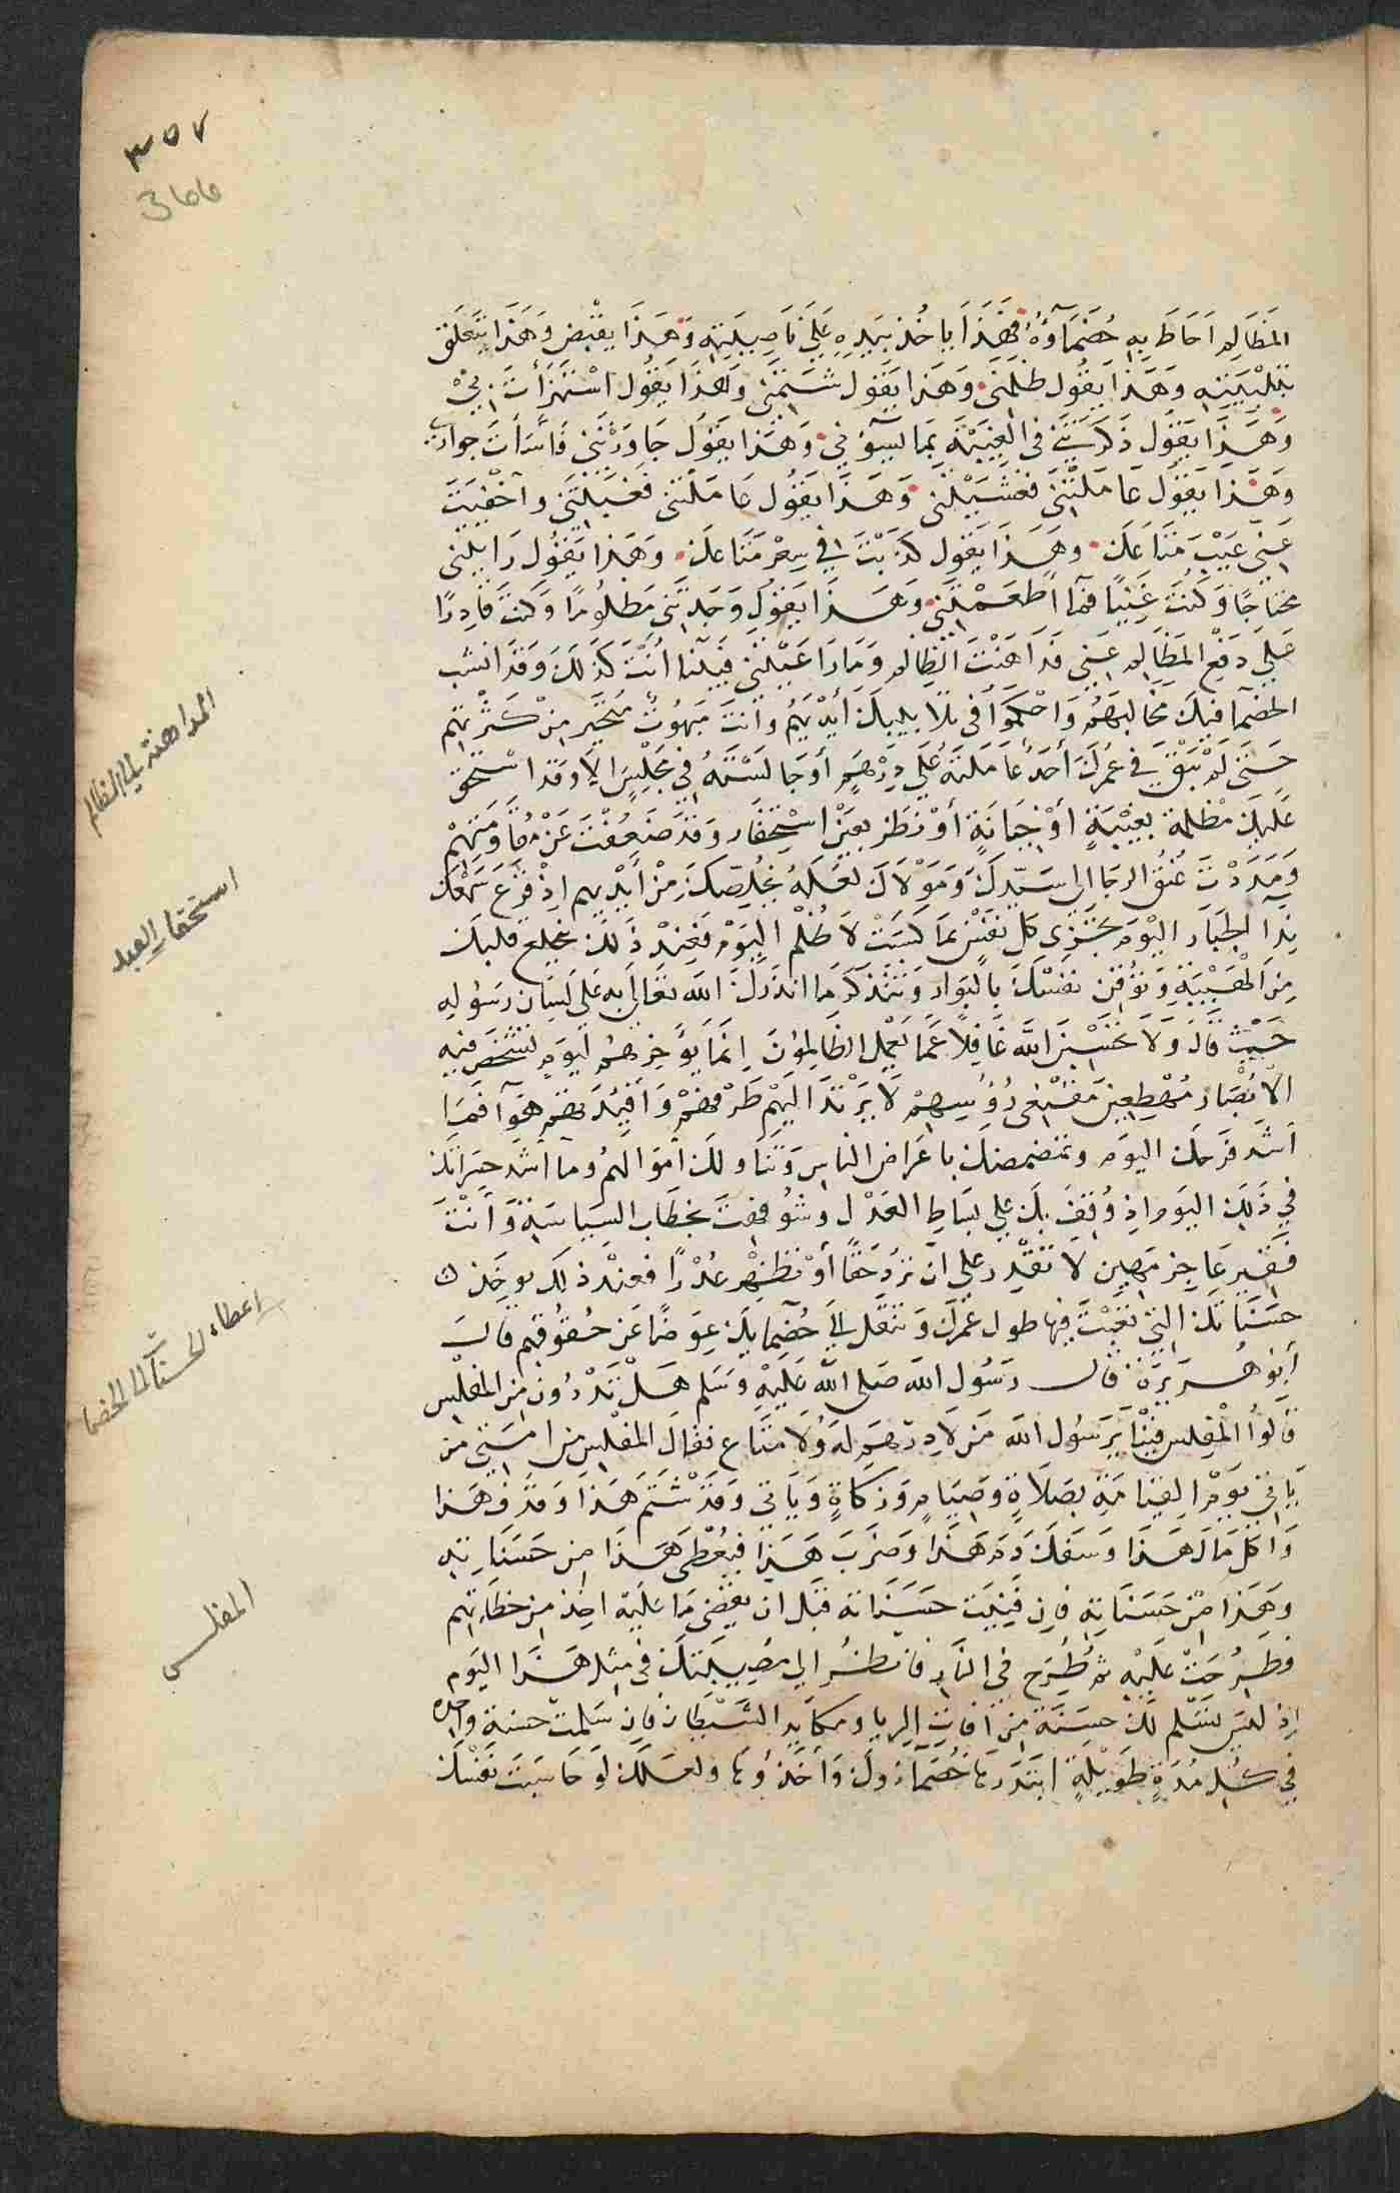 ٣٥٧
355
المظالم احاط به خصماؤه فهذا ياخذ بيده على ناصيته وهذا يقبض وهذا يتعلق
بتلبيبه وهذا يقول ظلمني وهذا يقول شتمني وهذا يقول استهزأت بي
وهذا يقول ذكرتني في الغيبة بما يسؤني وهذا يقول جاورتني فأسأت جواري
وهذا يقول عاملتني فغششتني وهذا يقول عاملتني فغبنتني وأخفيت
عني عيب متاعك وهذا يقول كذبت في سعر متاعك وهذا يقول رايتني
محتاجًا وكنت غنيًا فما اطعمتني وهذا يقول وجدتني مظلومًا وكنت قادرًا
على دفع المظالم عني فداهنت الظالم وما راعيتني فبينا أنت كذلك وقد انشب
الخصما فيك مخالبهم واحكموا في تلابيبك أيديهم وأنت مبهوت متحير من كثرتهم
حتى لم يبق في عمرك أحد عاملته على درهم أو جالسته في مجلس الا وقد استحق
عليك مظلمة بغيبة أو خيانة أو نظر بعين استحقار وقد ضعفت عن مقاومتهم
ومددت عنق الرجا الى سيدك ومولاك لعله يخلصك من أيديهم اذ قرع سمعك
ندآ الجبار اليوم تجزى كل نفس بما كسبت لا ظلم اليوم فعند ذلك يخلع قلبك
من الهيبة وتوقن نفسك بالبوار وتتذكر ما انذرك الله تعالى به على لسان رسوله
حيث قال ولا تحسبن الله غافلا عما يعمل الظالمون انما يؤخرهم ليوم تشخص فيه
الابصار مهطعين مقنعي رؤسهم لا يرتد اليهم طرفهم وأفئدتهم هوآ فما
أشد فرحك اليوم وتمضمضك باعراض الناس وتناولك أموالهم وما أشد حسراتك
في ذلك اليوم اذ وقف بك على بساط العدل وشوفهت بخطاب السياسة وأنت
فقير عاجز مهين لا تقدر على ان ترد حقا أو تظهر عذرًا فعند ذلك يوخذ
حسناتك التي تعبت فيها طول عمرك وتنقل الى خصمايك عوضًا عن حقوقهم قال
أبو هريرة قال رسول الله صلى الله عليه وسلم هل تدرون من المفلس
قالوا المفلس فينا يرسول الله من لا درهم له ولا متاع فقال المفلس من امتي من
ياتي يوم القيامة بصلاة وصيام وزكاة وياتي وقد شتم هذا وقذف هذا
واكل مال هذا وسفك دم هذا وضرب هذا فيعطى هذا من حسناته
وهذا من حسناته فان فنيت حسناته قبل ان يقضي ما عليه اخذ من خطاءتهم
فطرحت عليه ثم طرح في النار فانظر الى مصيبتك في مثل هذا اليوم
اذ ليس يسلم لك حسنة من آفات الريا ومكايد الشيطان فان سلمت حسنة واحده
في كل مدة طويلة ابتدرها خصماؤك وأخذوها ولعلك لو حاسبت نفسك
المداهنة الى الظالم
استحقار العبد
اعطاء الحسنات الى الخصما
المفلس